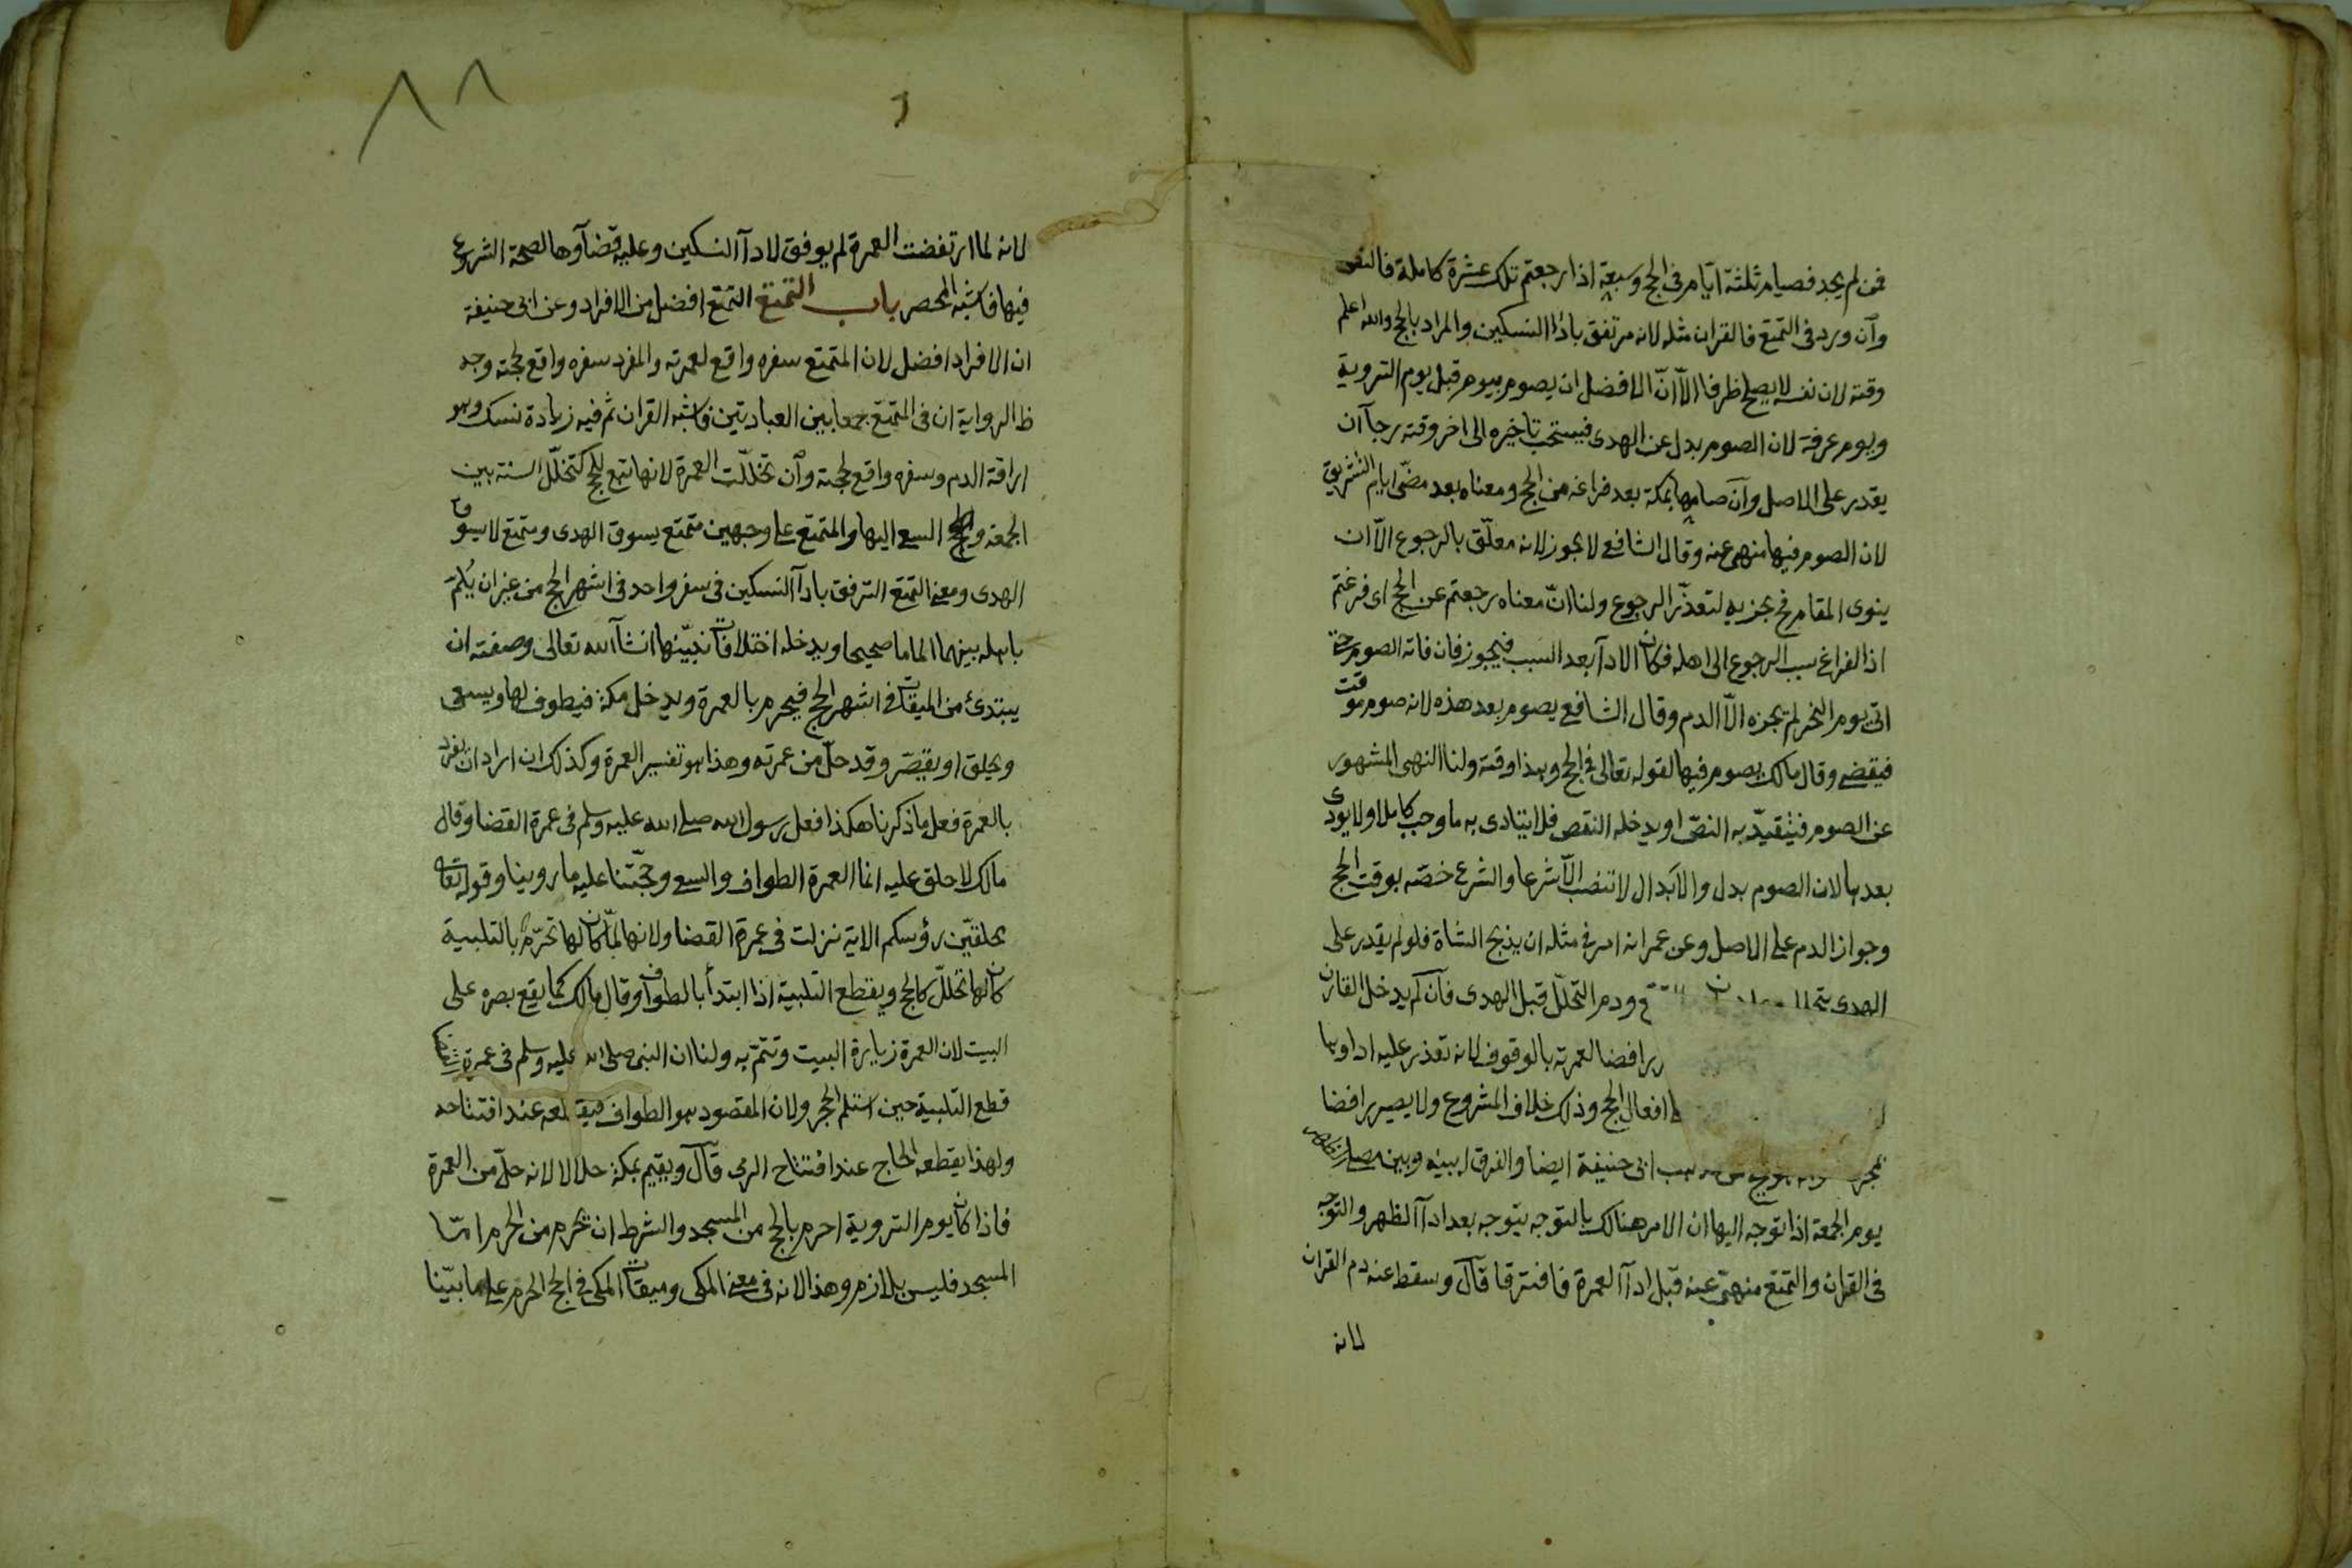 فمن لم يجد فصيام ثلثة ايّام فى الحج وسبعة اذا رجعتم تلك عشرة كاملة فالنص
وآن ورد فى التمتع فالقران مثله لانه مرتفق باداا النسكين والمراد بالحج والله اعلم
وقته لان نفسه لا يصلح ظرفا الاّ انّ الافضل ان يصوم بيوم قبل يوم التروية
ويوم عرفة لان الصوم بدل عن الهدى فيستحب تاخيره الى اخر وقته رجآ ان
يقدر على الاصل وآن صامها بمكة بعد فراغه من الحج ومعناه بعد مضىّ ايام التشريق
لان الصوم فيها منهى عنه وقال الشافعے لا يجوز لانه معلّق بالرجوع الاّ ان
ينوى المقام فح يجزيه لتعذّر الرجوع ولنا انّ معناه رجعتم عن الحج اى فرغتم
اذ الفراغ سبب الرجوع الى اهله فكان الادآ بعد السبب فيجوز فان فاته الصوم حتى
اتى يوم النحر لم يجزه الاّ الدم وقال الشافعے يصوم بعد هذه لانه صوم موقت
فيقضے وقال مالك يصوم فيها لقوله تعالى فى الحج وهذا وقته ولنا النهى المشهور
عن الصوم فيتقيّد به النصّ او يدخله النقص فلا يتادى به ما وجب كاملا ولا يودى
بعدها لان الصوم بدل والابدال لا تنصب الاّ شرعا والشرع خصّه بوقت الحج
وجواز الدم على الاصل وعن عمر انه امر فى مثله ان يذبح الشاة فلو لم يقدر على
الهدى ودم التحلّل قبل الهدى فآن لم يدخل القارن
رافضا لعمرته بالوقوف لانه تعذر عليه اداوها
افعال الحج وذلك خلاف المشروع ولا يصير رافضا
ابى حنيفة ايضا والفرق له بينه وبين مصلى الظهر
يوم الجمعة اذا توجه اليها ان الامر هنالك بالتوجه يتوجه بعد ادآ الظهر والتوجه
فى القران والتمتع منهىّ عنه قبل ادآ العمرة فافترقا قآل وسقط عنه دم القران
لانه
٨٨
لانه لما ارتفضت العمرة لم يوفق لادآ النسكين وعليه قضآوها لصحة الشروع
فيها فاشبه المحصر باب التمتع التمتع افضل من الافراد وعن ابى حنيفة
ان الافراد افضل لان المتمتع سفره واقع لعمرته والمفرد سفره واقع لحجته وجه
ظ الرواية ان فى التمتع جمعا بين العبادتين فاشبه القران ثم فيه زيادة نسك وهو
اراقة الدم وسفره واقع لحجته وآن تخلّلت العمرة لانها تبع للحج كتخلّل السنة بين
الجمعة والسعے اليها والمتمتع على وجهين متمتع يسوق الهدى ومتمتع لا يسوق
الهدى ومعنے التمتع الترفق بادآ النسكين فى سفر واحد فى اشهر الحج من غير ان يُلمّ
باهله بينهما الماما صحيحا ويدخله اختلافات نبيّنها ان شآ الله تعالى وصفته ان
يبتدئ من الميقات فى اشهر الحج فيحرم بالعمرة ويدخل مكة فيطوف لها ويسعى
ويحلق او يقصّر وقد حلّ من عمرته وهذا هو تفسير العمرة وكذلك ان اراد ان يفرد
بالعمرة فعل ما ذكرنا هكذا فعل رسول الله صلے الله عليه وسلم فى عمرة القضا وقال
مالك لا حلق عليه انما العمرة الطواف والسعے وحجّتنا عليه ما روينا وقوله تعالى
محلقيّن رؤسكم الاية نزلت فى عمرة القضا ولانها لمّا كان لها تحرّم بالتلبية
كان لها تحلّل كالحج ويقطع التلبية اذا ابتدأ بالطواف وقال مالك كما يقع بصره على
البيت لان العمرة زيارة البيت وتتمّ به ولنا ان النبى صلى الله عليه وسلم فى عمرة القضا
قطع التلبية حين استلم الحجر ولان المقصود هو الطواف فيقطعه عند افتتاحه
ولهذا يقطعه الحاج عند افتتاح الرمى قآل ويقيم بمكة حلالا لانه حلّ من العمرة
فاذا كان يوم التروية احرم بالحج من المسجد والشرط ان يحرم من الحرم امّا
المسجد فليس بلازم وهذا لانه فى معنے المكى وميقات المكى فى الحج الحرم على ما بيّنا